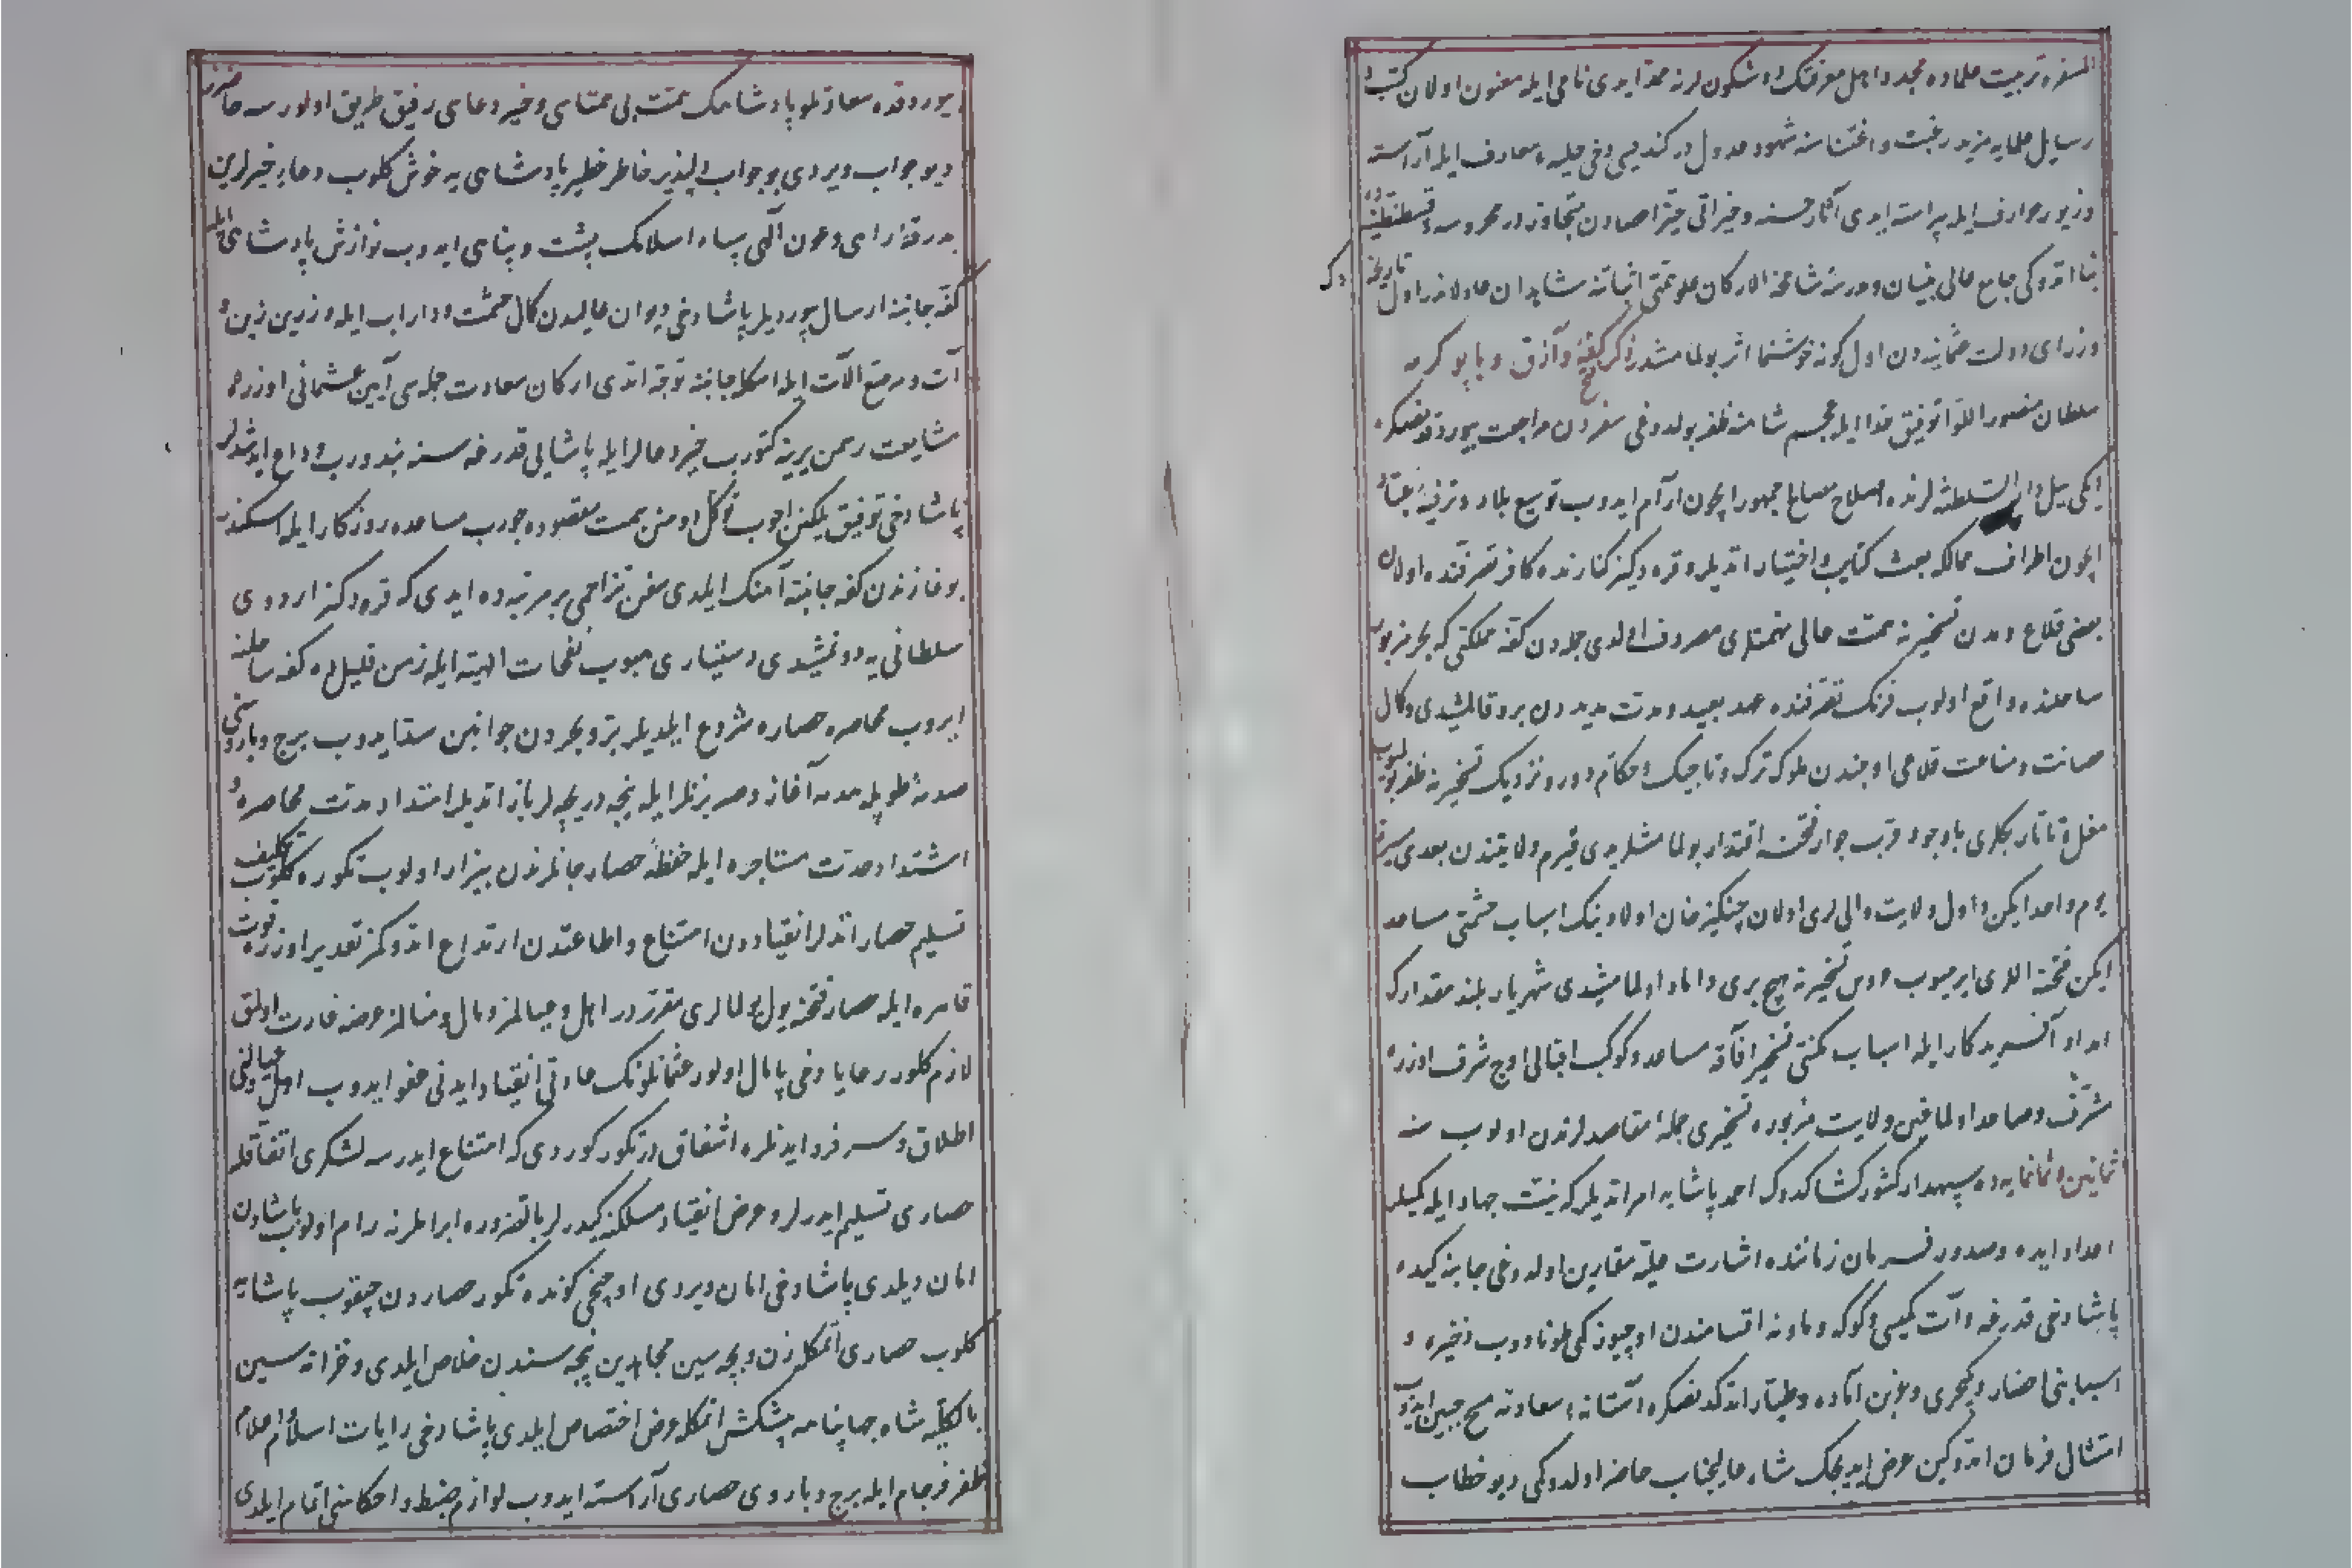 السنه و تربیت علماده مجد و اهل معرفتك دلشکون لرنه ممد ایدی نامی ایله معنون اولان کتب و
رسایل علمایه مزید رغبت و اعتناسنه شهود عدول در کندیسی دخی حلیهٔ معارف ایله آراسته
و زیور عوارف ایله پیراسته ایدی آثار حسنه و خیراتی حیز احصادن متجاوزدر محروسهٔ قسطنطنیه
بنا اتدوکی جامع عالی بنیان و مدرسهٔ شامخة الارکان علو همتی اثباتنه شاهدان عادلاندر اول تاریخه دك
وزرای دولت عثمانیه دن اول کونه خوشنما اثر بولنامشدر ذکر فتح کفه و آزق و یاپو کرمه
سلطان منصور اللوا توفیق خدا ایله عجم شاهنه ظفر بولدوغی سفردن مراجعت بیوردقدنصکره
ایکی ییل دار السلطنه لرنده اصلاح مصالح جمهور ایچون آرام ایدوب توسیع بلاد و ترفیهٔ عباد
ایچون اطراف ممالکه بعث کتایب اختیار اتدیلر و قره دکیز کنارنده کافر تصرفنده اولان
بعضی قلاع و مدن تسخیرنه همت عالی نهمتلری مصروف اولدی جمله دن کفه مملکتی که بحر مزبور
ساحلنده واقع اولوب فرنك تصرفنده عهد بعید و مدت مدیددن برو قالمشیدی و کمال
حصانت و مناعت قلاعی اوجندن ملوك ترك و تاجیك و حکام دور و نزدیك تسخیرنه ظفر بولمیوب
مغل و تاتار بکلری باوجود قرب جوار فتحنه اقتدار بولمامشلریدی قیرم ولایتندن بعدی مسیرهٔ
یوم واحد ایکن و اول ولایت والی لری اولان چنکیز خان اولادینك اسباب حشمتی مساعد
ایکن فتحنه اللری ایرمیوب عروس تسخیرنه هیچ بری داماد اولمامیشدی شهریار بلند مقدارك
امداد آفریدکار ایله اسباب مکنتی تسخیر آفاقه مساعد و کوکب اقبالی اوج شرف اوزره
مشرف و صاعد اولماغین ولایت مزبوره تسخیری جملهٔ مقاصدلرندن اولوب سنه
ثمانین و ثمانمایه ده سپهدار کشور کشا کدك احمد پاشایه امر اتدیلر که نیت جهاد ایله کمیلر
اعداد ایده و صدور فرمان زماننده اشارت علیه مقارین اولدوغی جانبه کیده
پاشا دخی قدرغه و آت کمیسی و کوکه و ماونه اقسامندن اوچیوز کمی طونادوب ذخیره و
اسبابنی احضار و یکیچری و عزبن آماده و طیار اتدکدنصکره آستانهٔ سعادته مسح جبین ایدوب
امتثال فرمان اتدوکین عرض ایدیجك شاه عالیجناب حاضر اولدوکی دیو خطاب
بیوردقده سعادتلو پادشاهك همت بی همتاسی و خیر دعاسی رفیق طریق اولورسه حاضرز
دیو جواب ویردی بو جواب دلپذیر خاطر خطیر پادشاهی یه خوش کلوب دعای خیرلرین
بدرقهٔ راهی و عون آلهی سپاه اسلامك پشت و پناهی ایدوب نوازش پادشاهی ایله
کفه جانبنه ارسال بیوردیلر پاشا دخی دیوان عالیدن کمال حشمت و داراب ایله و زرین زین و
آت و مرصع آلات ایله اسکله جانبنه توجه اتدی ارکان سعادت جمله سی آیین عثمانی اوزره
مشایعت رسمن یرینه کتورب خیر دعالر ایله پاشایی قدرغه سنه بندورب وداع ایتدیلر
پاشا دخی توفیق یلکنن اچوب توکل دومنن سمت مقصوده چورب مساعدهٔ روزکار ایله اسکندر
بوغازندن کفه جانبنه آهنك ایلدی سفن تزاحمی بر مرتبه ده ایدی که قره دکیز اردوی
سلطانی یه دونمشیدی دستیاری هبوب نفحات الهیه ایله زمن قلیلده کفه ساحلنه
ایروب محاصره حصاره شروع ایلدیلر بر و بحردن جوانبن سد ایدوب برج و باروسنی
صدمهٔ طوپله هدمه آغاز و ضربزنلر ایله نیجه دریچه لر باز اتدیلر امتداد مدت محاصره و
اشتداد حدت مشاجره ایله حفظهٔ حصار جانلرندن بیزار اولوب تکوره کلوب تکلیف
تسلیم حصار اتدیلر انقیاددن امتناع و اطاعتدن ارتداع اتدوکمز تقدیر اوزره قوت
قاهره ایله حصار فتحنه یول بولمالری مقرردر اهل و عیالمز و مال و منالمز عرضهٔ غارت اولمق
لازم کلور رعایا دخی پامال اولور عثمانلونك عادتی انقیاد ایدنی عفو ایدوب اهل و عیالنی
اطلاق و سر فرو ایدنلره اشفاق در تکور کوردی که امتناع ایدرسه لشکری اتفاقله
حصاری تسلیم ایدرلر و عرض انقیاد مسلکنه کیدرلر بالضروره ابراملرنه رام اولوب پاشادن
امان دیلدی پاشا دخی امان ویردی اوچنجی کونده تکور حصاردن چیقوب پاشایه
کلوب حصاری اتمکله زن و بچه سین مجاهدین پنجه سندن خلاص ایلدی و خزانه سین
بالکلیه شاه جهانپناهه پیشکش اتمکله عرض اختصاص ایلدی پاشا دخی رایات اسلام اعلام
ظفر فرجام ایله برج و باروی حصاری آراسته ایدوب لوازم ضبط و احکامنی اتمام ایلدی